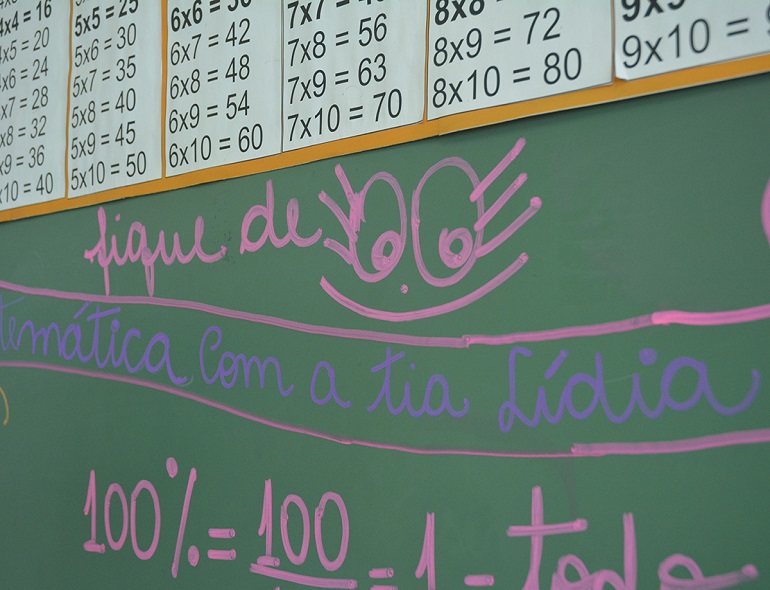 4x4 = 16
4x5 = 20
4x6 = 24
4x7 = 28
x8 = 32
x9 = 36
x10 = 40
5x5 = 25
5x6 = 30
5x7 = 35
5x8 = 40
5x9 = 45
5x10 = 50
6x6 = 36
6x7 = 42
6x8 = 48
6x9 = 54
6x10 = 60
7x7 =
7x8 = 56
7x9 = 63
7x10 = 70
8x8
8x9 = 72
8x10 = 80
9x9
9x10 =
fique de
temática com a tia Lídia
100% = 100 = 1 - todo